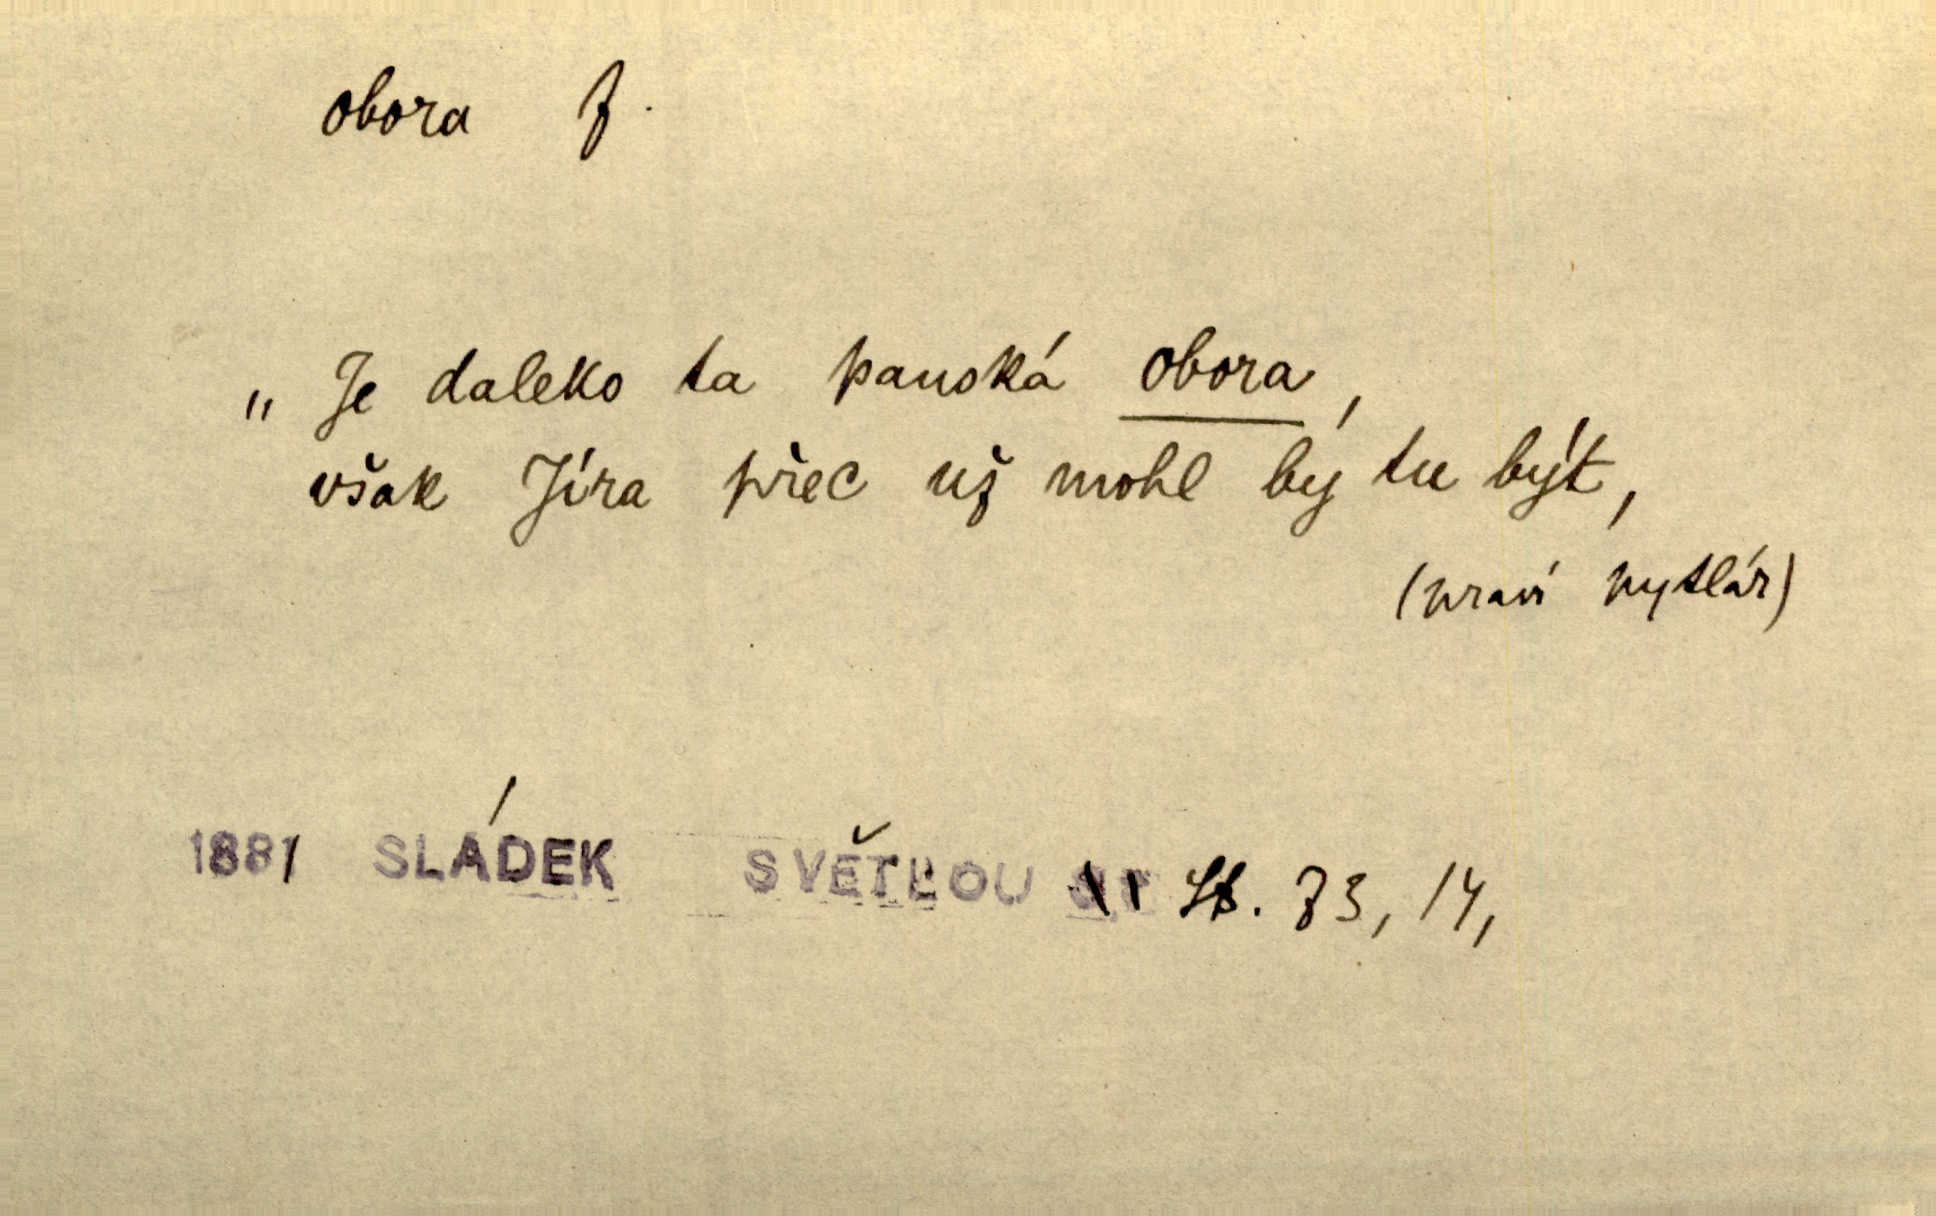 obora f.
„Je daleko ta panská obora,
však Jíra přec už mohl by tu být,
(praví pytlár)
1881 SLÁDEK SVĚTLOU St. 73, 14,